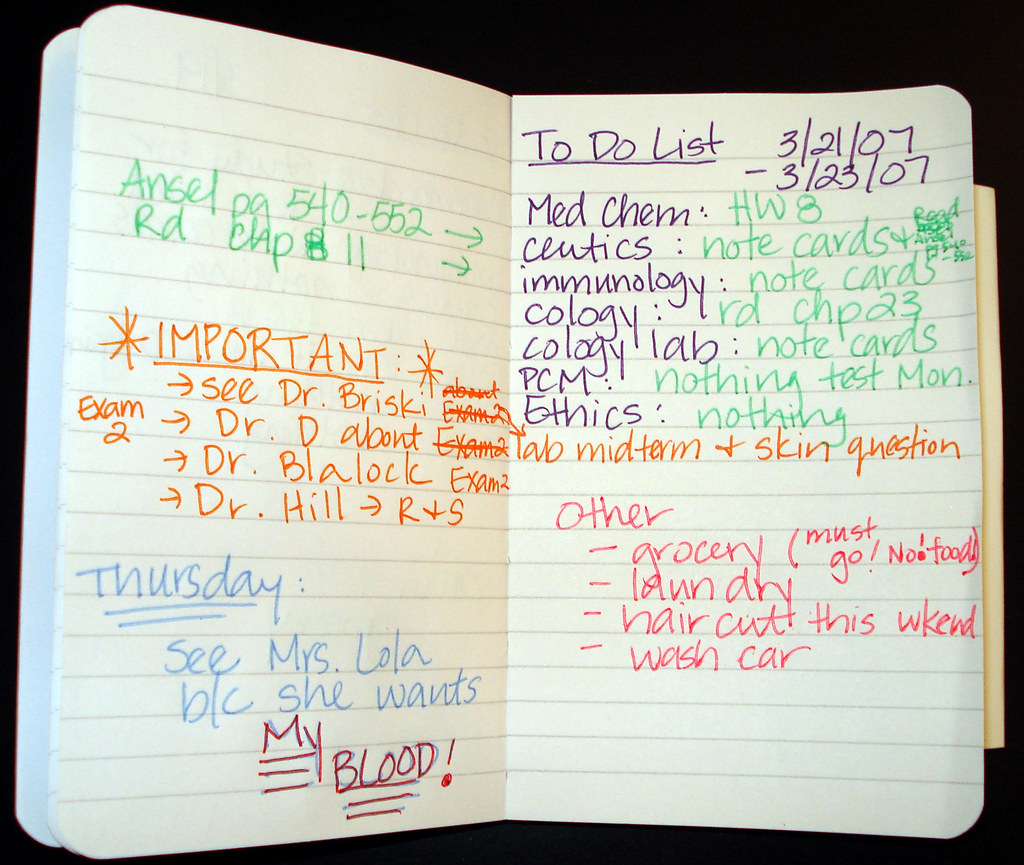 Ansel pg 540-552 →
Rd chp 11 →
* IMPORTANT: *
→ see Dr. Briski about Exam2
Exam 2 → Dr. D about Exam2 lab midterm + skin question
→ Dr. Blalock Exam2
→ Dr. Hill → R+S
Thursday:
see Mrs. Lola
b/c she wants
My
BLOOD!
To Do List 3/21/07
- 3/23/07
Med Chem: HW 8
ceutics: note cards + Read Ansel
immunology: note cards
cology: rd chp 23
cology lab: note cards
PCM: nothing test Mon.
Ethics: nothing
Other
- grocery (must go! No food!)
- laundry
- hair cut this wkend
- wash car